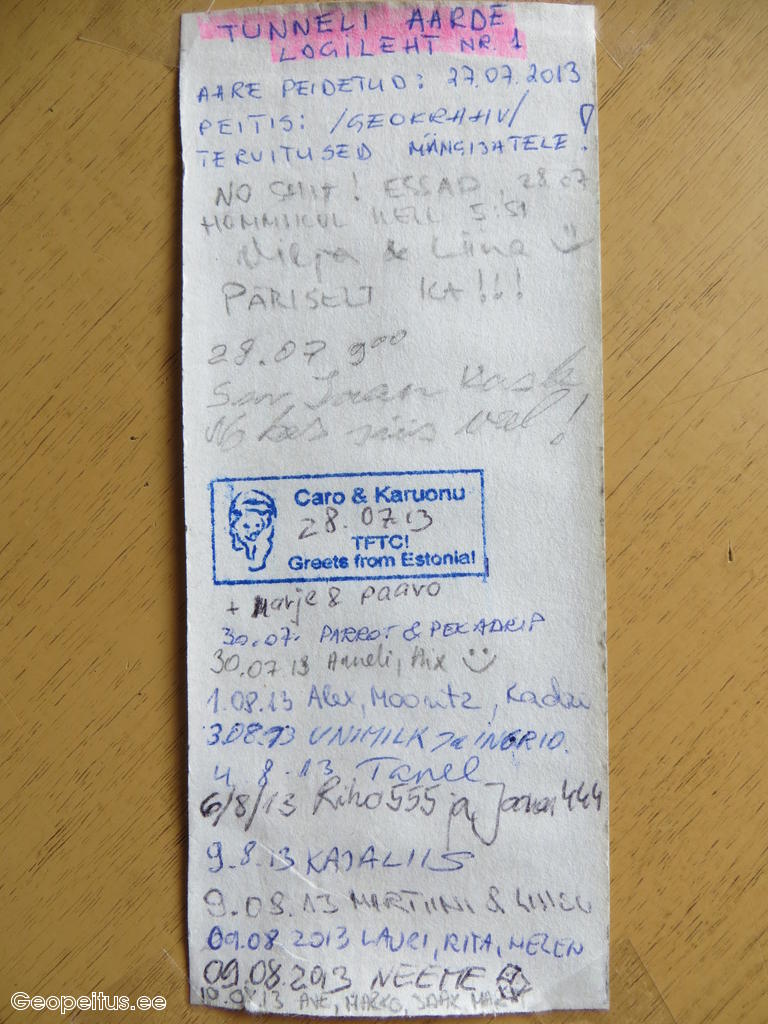 TUNNELI AARDE
LOGILEHT NR. 1
AARE PEIDETUD: 27.07.2013
PEITIS: /GEOKRAHV/
TERVITUSED MÄNGIJATELE!
NO SHIT! ESSAD, 28.07
HOMMIKUL KELL 5:51
& Liina :)
PÄRISELT KA!!!
28.07 9⁰⁰
Jaan Kask
No kes siis veel!
Caro & Karuonu
28.07.13
TFTC!
Greets from Estonia!
+ Marje & Paavo
30.07. PARROT &
30.07.13 Anneli, Aix :)
1.08.13 Alex, Mooritz, Kadri
3.08.13 UNIMILK ja INGRID.
4.8.13 Tanel
6/8/13 Riho555 ja Joonas444
9.8.13 KAJALIIS
9.08.13 MARTIINI &
09.08 2013 LAURI, RITA, HELEN
09.08.2013 NEEME
10.9.13 AVE, MARKO, JAAK, MARIT
Geopeitus.ee